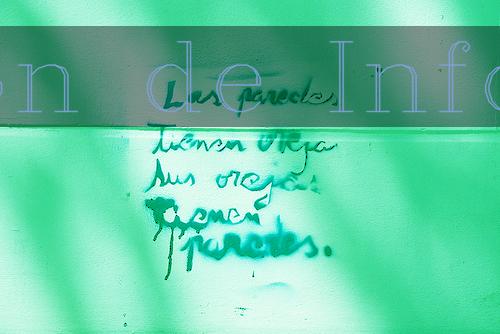 n de Info
Las paredes
Tienen oreja
Sus orejas
Tienen
paredes.